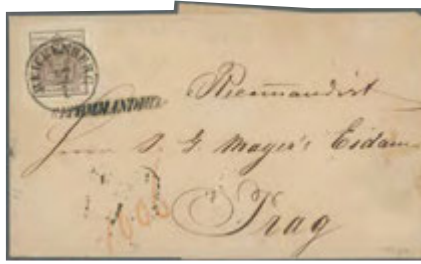 REICHENBERG
RECOMMANDIRT
Recomandirt
Herrn J. G. Mayer's Eidam
Prag